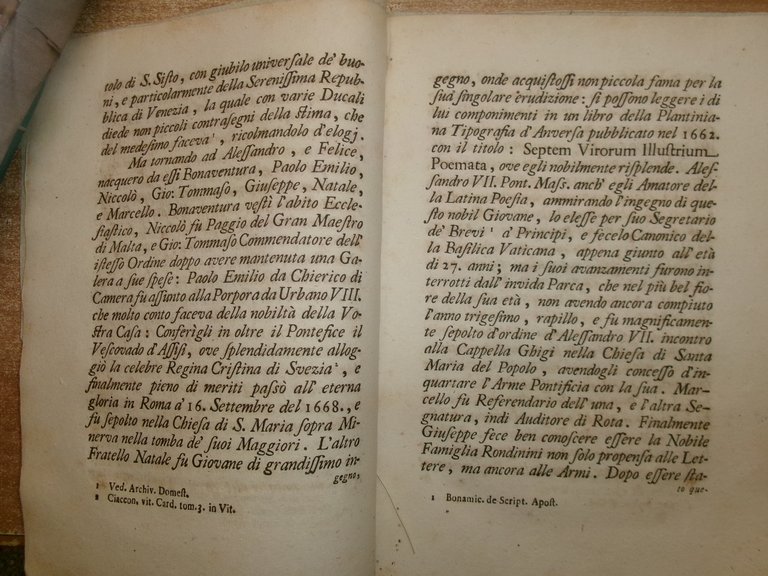 tolo di S. Sisto, con giubilo universale de' buo-
ni, e particolarmente della Serenissima Repub-
blica di Venezia, la quale con varie Ducali
diede non piccoli contrasegni della stima, che
del medesimo faceva¹, ricolmandolo d'elogj.
Ma tornando ad Alessandro, e Felice,
nacquero da essi Bonaventura, Paolo Emilio,
Niccolò, Gio: Tommaso, Giuseppe, Natale,
e Marcello. Bonaventura vestì l'abito Eccle-
siastico, Niccolò fù Paggio del Gran Maestro
di Malta, e Gio: Tommaso Commendatore dell'
istesso Ordine doppo avere mantenuta una Ga-
lera a sue spese: Paolo Emilio da Chierico di
Camera fù assunto alla Porpora da Urbano VIII.
che molto conto faceva della nobiltà della Vo-
stra Casa: Conferìgli in oltre il Pontefice il
Vescovado d'Assisi, ove splendidamente allog-
giò la celebre Regina Cristina di Svezia², e
finalmente pieno di meriti passò all' eterna
gloria in Roma a' 16. Settembre del 1668., e
fù sepolto nella Chiesa di S. Maria sopra Mi-
nerva nella tomba de' suoi Maggiori. L'altro
Fratello Natale fù Giovane di grandissimo in-
gegno,
1 Ved. Archiv. Domest.
2 Ciaccon. vit. Card. tom. 3. in Vit.
gegno, onde acquistossi non piccola fama per la
sua singolare erudizione: si possono leggere i di
lui componimenti in un libro della Plantinia-
na Tipografia d'Anversa pubblicato nel 1662.
con il titolo: Septem Virorum Illustrium
Poemata, ove egli nobilmente risplende. Ales-
sandro VII. Pont. Mass. anch' egli Amatore del-
la Latina Poesia, ammirando l'ingegno di que-
sto nobil Giovane, lo elesse per suo Segretario
de' Brevi¹ a' Principi, e fecelo Canonico del-
la Basilica Vaticana, appena giunto all' età
di 27. anni; ma i suoi avanzamenti furono in-
terrotti dall' invida Parca, che nel più bel fio-
re della sua età, non avendo ancora compiuto
l'anno trigesimo, rapillo, e fu magnificamen-
te sepolto d'ordine d'Alessandro VII. incontro
alla Cappella Ghigi nella Chiesa di Santa
Maria del Popolo, avendogli concesso d'in-
quartare l'Arme Pontificia con la sua. Mar-
cello fu Referendario dell' una, e l'altra Se-
gnatura, indi Auditore di Rota. Finalmente
Giuseppe fece ben conoscere essere la Nobile
Famiglia Rondinini non solo propensa alle Let-
tere, ma ancora alle Armi. Dopo essere sta-
to que-
1 Bonamic. de Script. Apost.